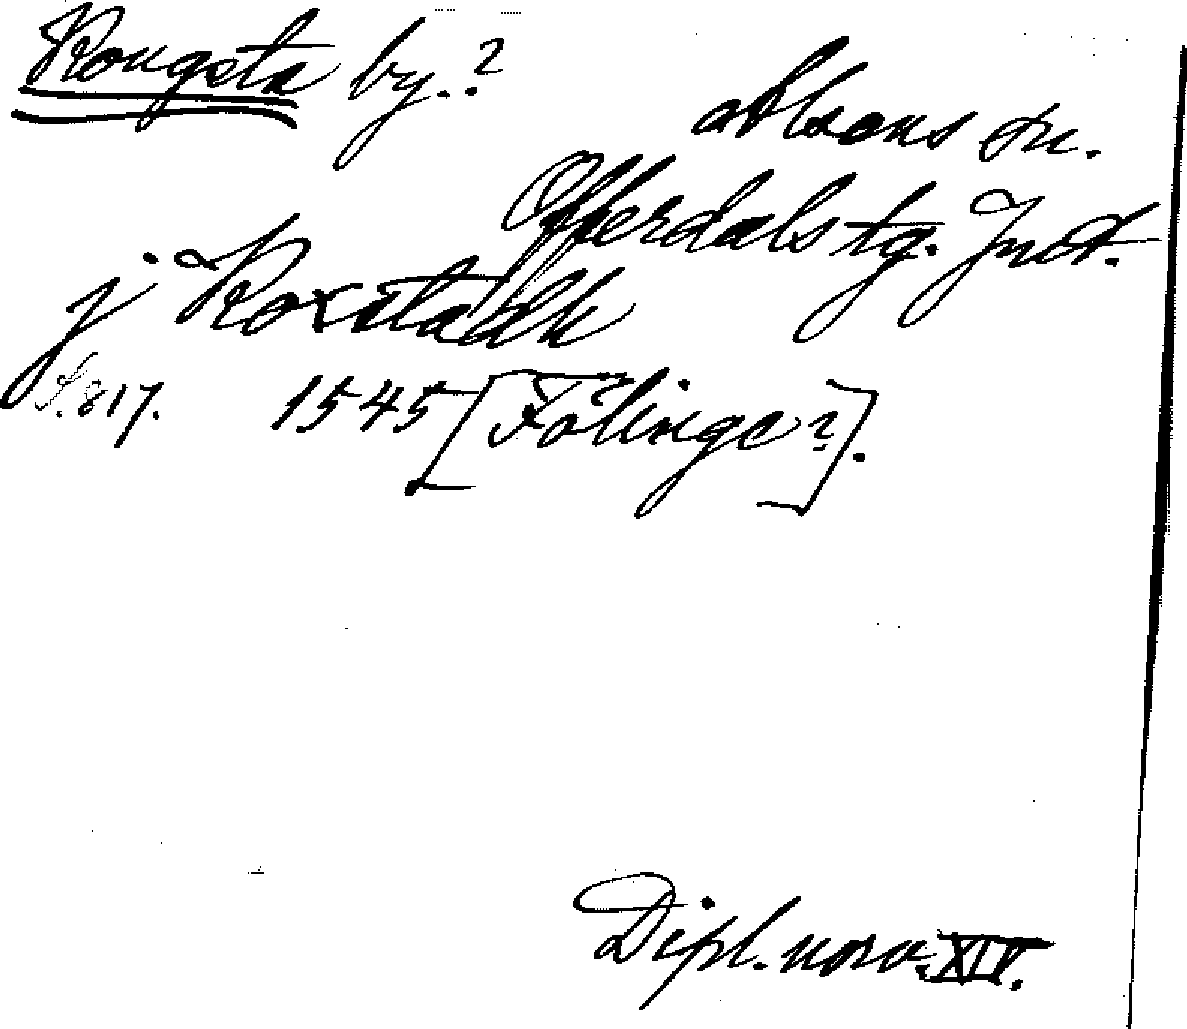 Rougsta by.?
Alsens sn.
Offerdals tg. Jmt.
j Roxstadh
S. 817. 1545 [Fölinge?].
Dipl. norv. XIV.